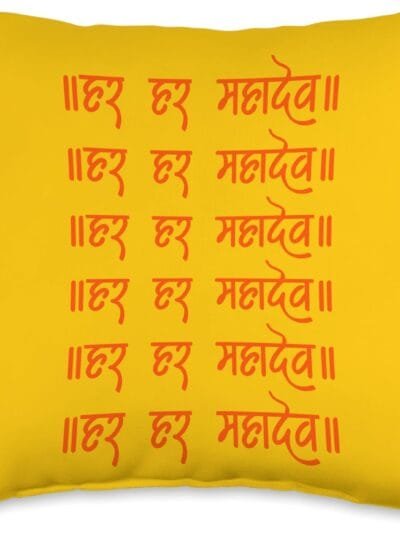 ॥हर हर महादेव॥
॥हर हर महादेव॥
॥हर हर महादेव॥
॥हर हर महादेव॥
॥हर हर महादेव॥
॥हर हर महादेव॥